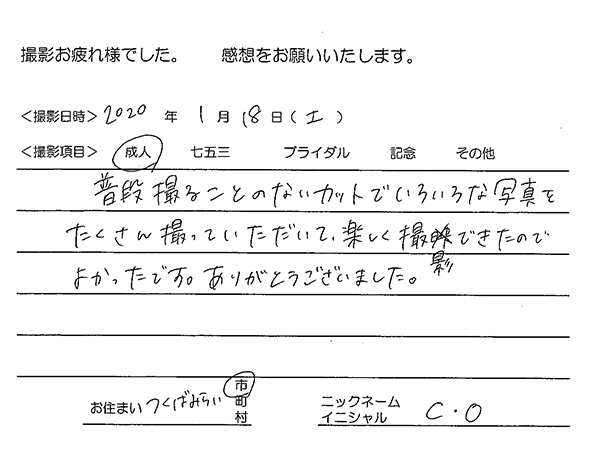 撮影お疲れ様でした。 感想をお願いいたします。
<撮影日時> 2020 年 1 月 18 日 ( 土 )
<撮影項目> 成人 七五三 ブライダル 記念 その他
普段撮ることのないカットでいろいろな写真を
たくさん撮っていただいて、楽しく撮影できたので
よかったです。ありがとうございました。
お住まい つくばみらい 市 町 村
ニックネーム イニシャル C・O